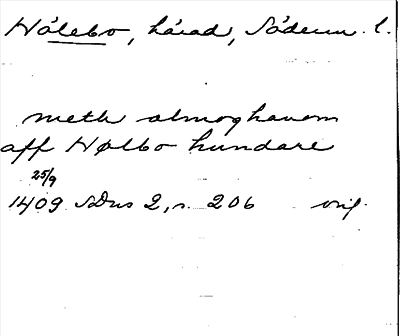 Hölebo, härad, Söderm. l.
meth almoghanom
aff Hølbo hundare
25/9
1409 SDns 2, s. 206 orig.